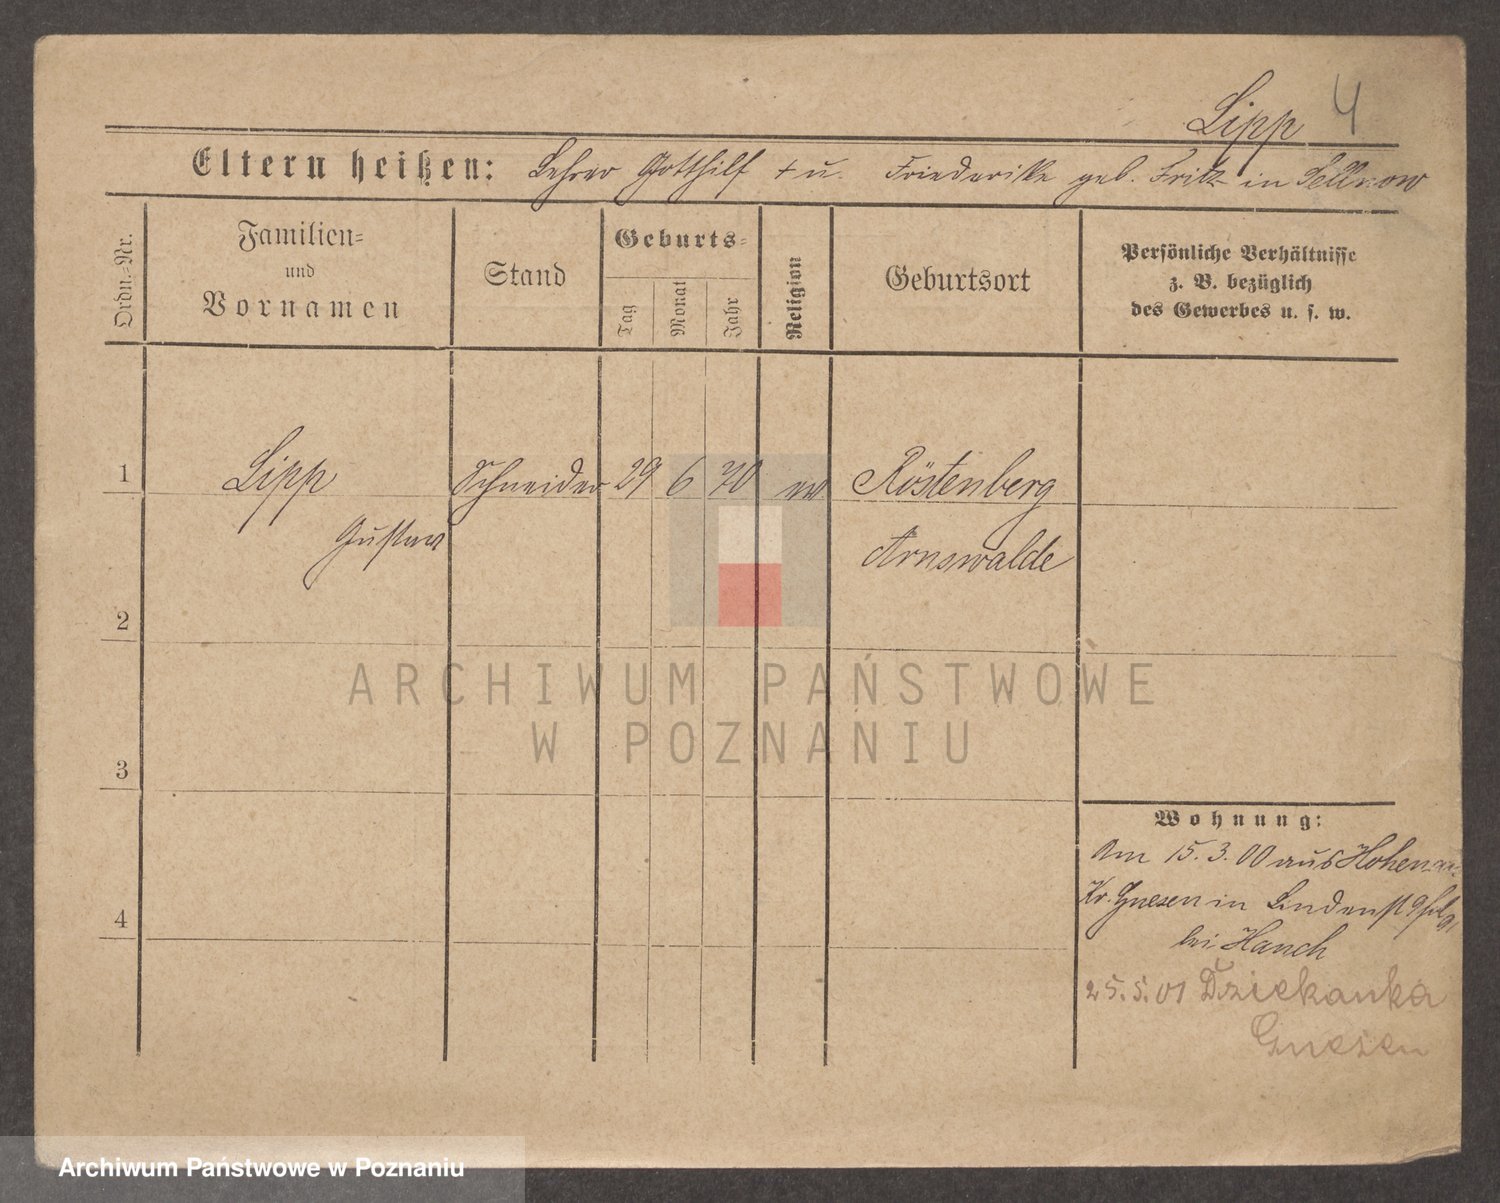 Lipp 4
Eltern heißen: Lehrer Gotthilf + u. Friederike geb. Fritz in Sellnow
Ordn.=Nr.
Familien=
und
Vornamen
Stand
Geburts=
Tag
Monat
Jahr
Religion
Geburtsort
Persönliche Verhältnisse
z. B. bezüglich
des Gewerbes u. s. w.
1 Lipp Schneider 29 6 70 ev Röstenberg
Gustav Arnswalde
2
ARCHIWUM PAŃSTWOWE
W POZNANIU
3
Wohnung:
Am 15.3.00 aus
Kr. Gnesen in Lindenst 9
4
bei Hanch
25.5.01 Dziekanka
Gnesen
Archiwum Państwowe w Poznaniu